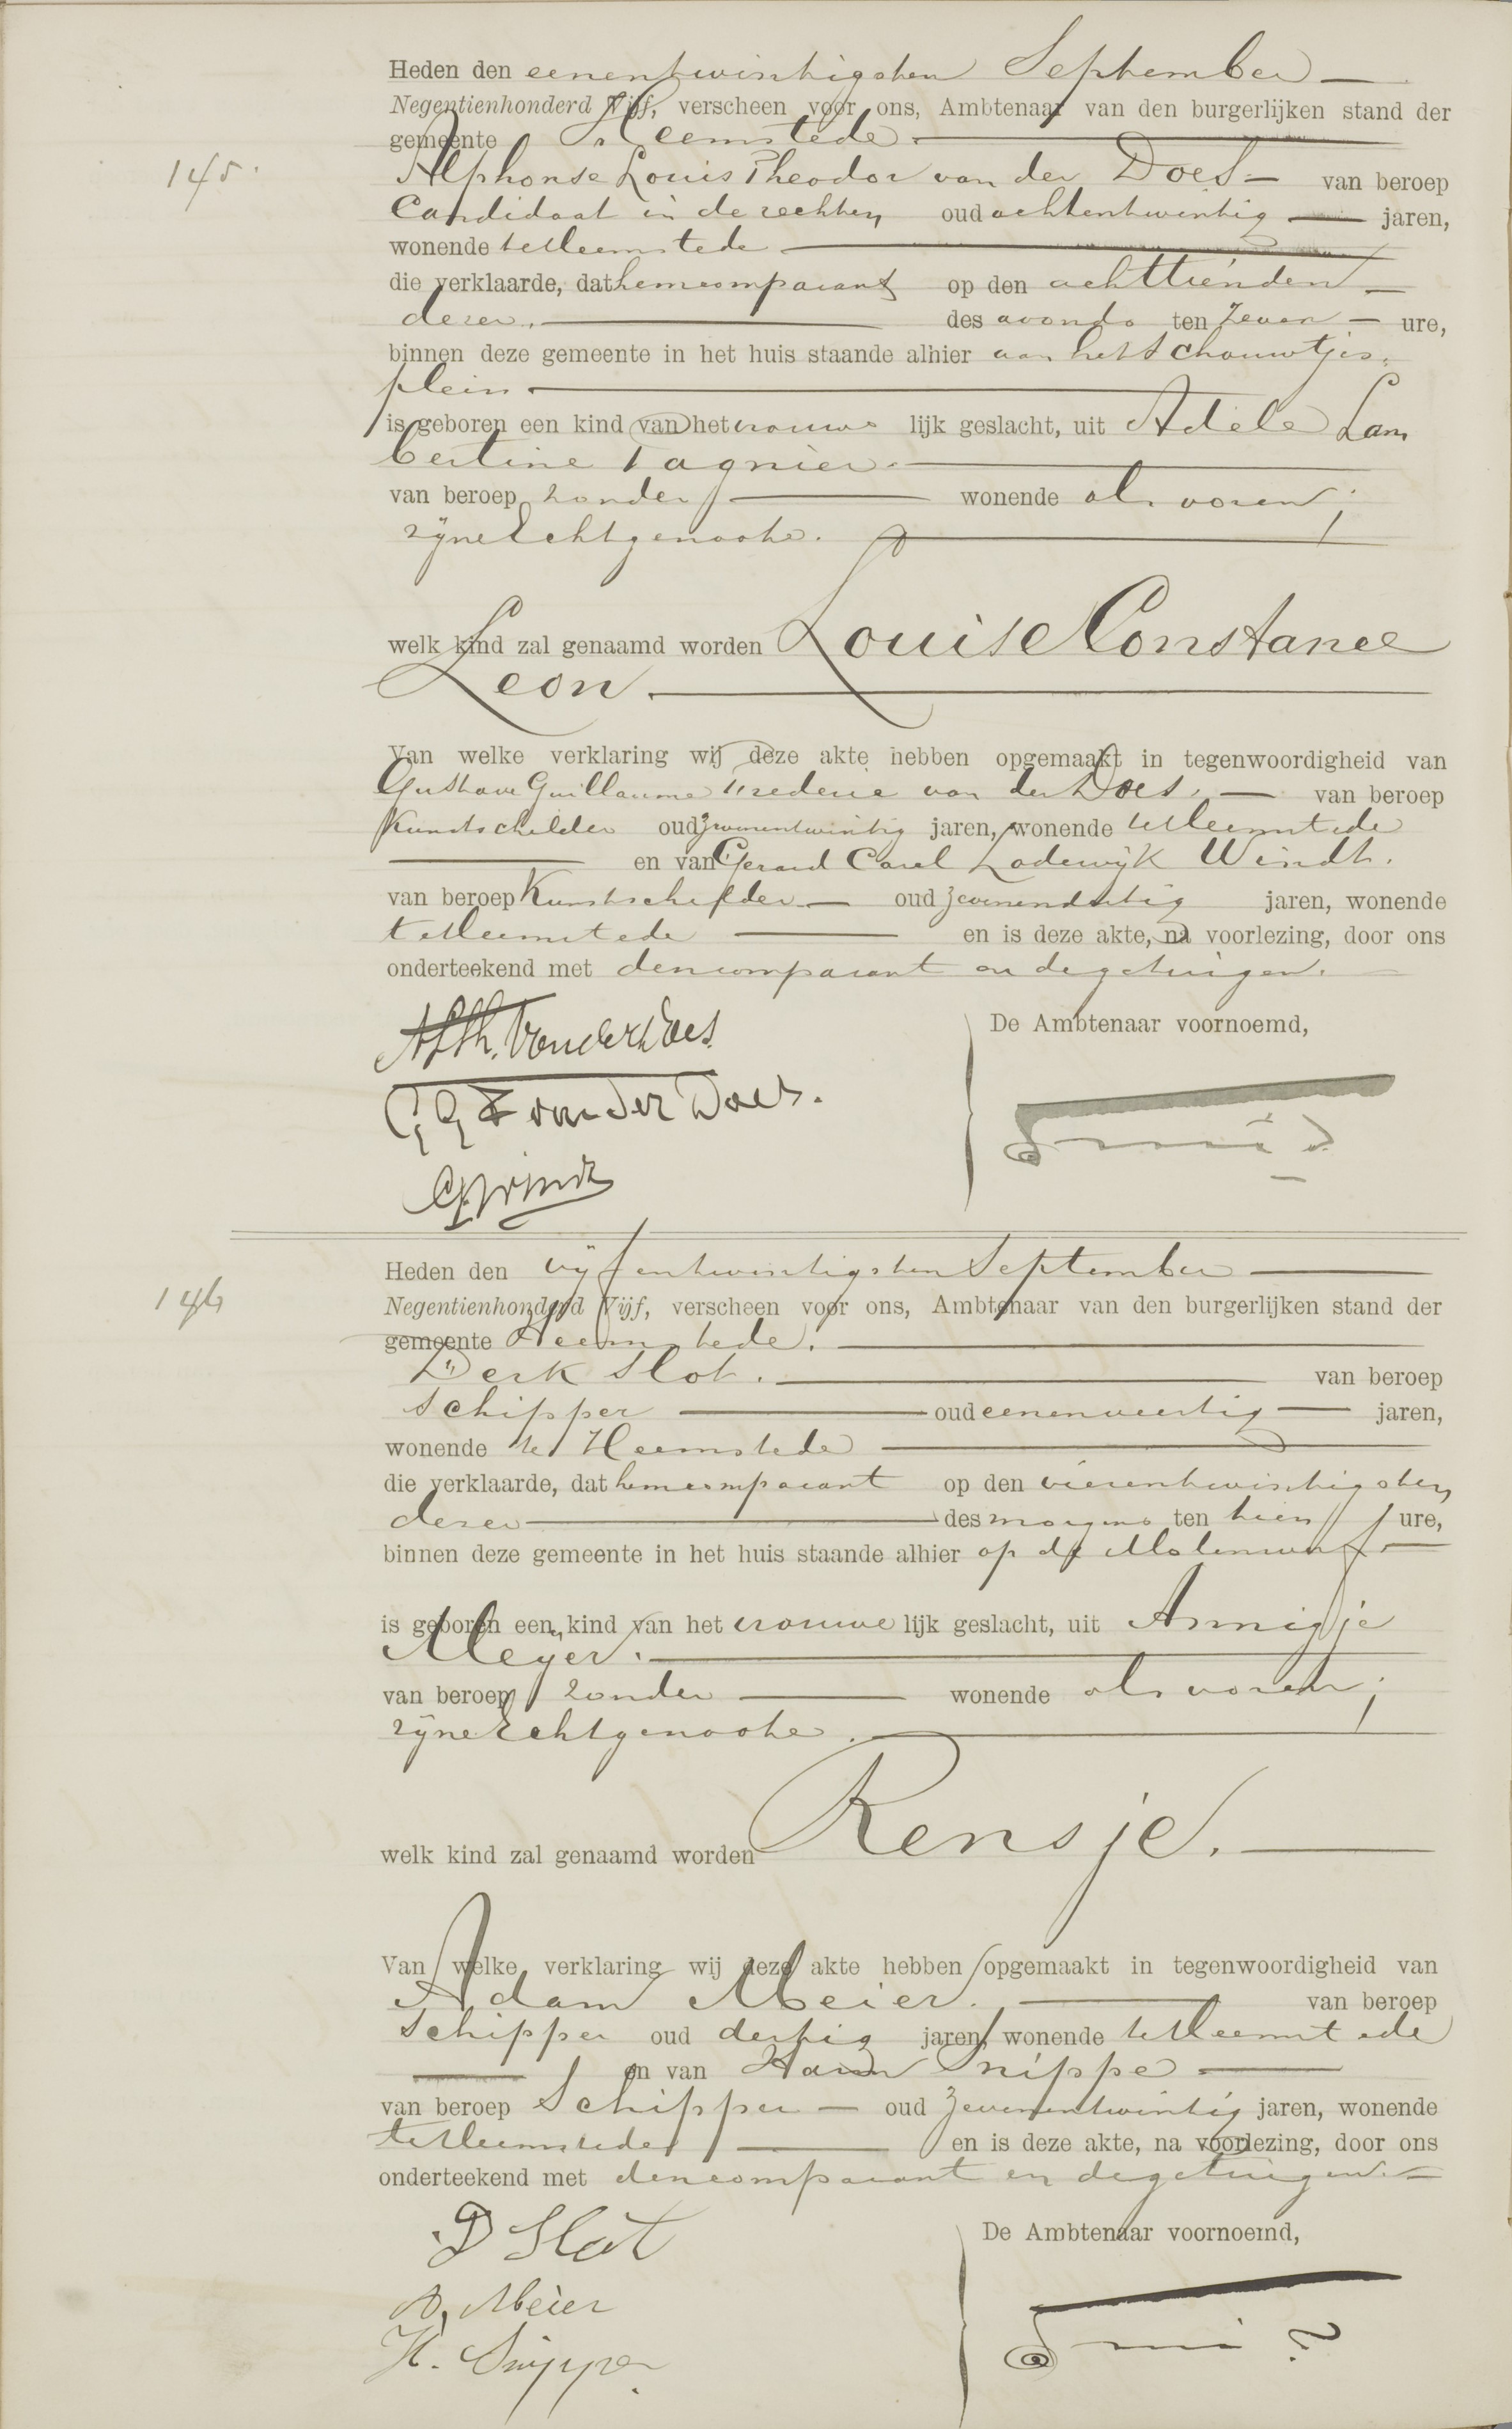 Heden den eenentwintigsten September
Negentienhonderd Vijf, verscheen voor ons, Ambtenaar van den burgerlijken stand der
gemeente Heemstede.
145.
Alphonse Louis Theodor van der Does van beroep
Candidaat in de rechten oud achtentwintig jaren,
wonende te Heemstede
die verklaarde, dat hem comparant op den achttienden
dezer, des avonds ten zeven ure,
binnen deze gemeente in het huis staande alhier aan het Schouwtjes-
plein
is geboren een kind van het vrouwe lijk geslacht, uit Adèle Lam
bertine Tagnier.
van beroep zonder wonende als voren;
zijne Echtgenoote.
welk kind zal genaamd worden Louise Constance
Leon.
Van welke verklaring wij deze akte hebben opgemaakt in tegenwoordigheid van
Gustave Guillaume Frederic van der Does, van beroep
Kunstschilder oud jaren, wonende te Heemstede
en van Gerard Carel Lodewijk Windt.
van beroep Kunstschilder oud zevenendertig jaren, wonende
te Heemstede en is deze akte, na voorlezing, door ons
onderteekend met den comparant en de getuigen.
De Ambtenaar voornoemd,
ALTh. van der Does
G G F van der Does.
Windt
Heden den vijfentwintigsten September
146
Negentienhonderd Vijf, verscheen voor ons, Ambtenaar van den burgerlijken stand der
gemeente Heemstede.
Derk Slot. van beroep
Schipper oud eenenveertig jaren,
wonende te Heemstede
die verklaarde, dat hem comparant op den vierentwintigsten
dezer des morgens ten tien ure,
binnen deze gemeente in het huis staande alhier op de Molenwerf
is geboren een kind van het vrouwe lijk geslacht, uit Annigje
Meijer.
van beroep zonder wonende als voren;
zijne Echtgenoote.
welk kind zal genaamd worden Rensje.
Van welke verklaring wij deze akte hebben opgemaakt in tegenwoordigheid van
Adam Meier. van beroep
Schipper oud dertig jaren, wonende te Heemstede
en van Harm Snippe
van beroep Schipper oud zevenentwintig jaren, wonende
te Heemstede en is deze akte, na voorlezing, door ons
onderteekend met den comparant en de getuigen.
De Ambtenaar voornoemd,
D Slot
A. Meier
H. Snippe